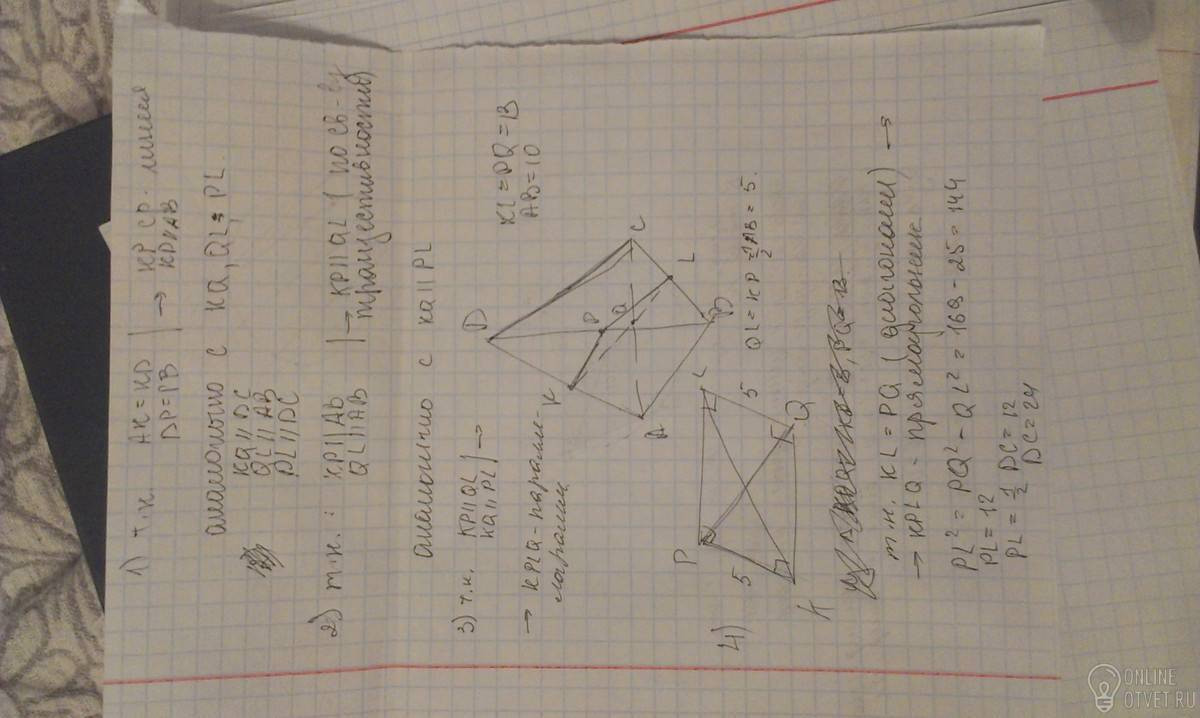 1) т.к. AK=KD | → KP ср. линия
DP=PB | KP∥AB
аналогично с KQ, QL, PL.
KQ∥DC
QL∥AB
PL∥DC
2) т.к.: KP∥AB | → KP∥QL (по св-ву
QL∥AB | транзитивности)
аналогично с KQ∥PL
3) т.к. KP∥QL | →
KQ∥PL |
→ KPLQ - паралле-
лограмм
D
K
P
Q
C
L
A
B
KL=PQ=13
AB=10
4)
P
L
5
5
K
Q
QL=KP=½AB=5.
т.к. KL=PQ (диагонали) →
→ KPLQ - прямоугольник
PL²=PQ²-QL²=169-25=144
PL=12
PL=½DC=12
DC=24
ONLINE
OTVET.RU